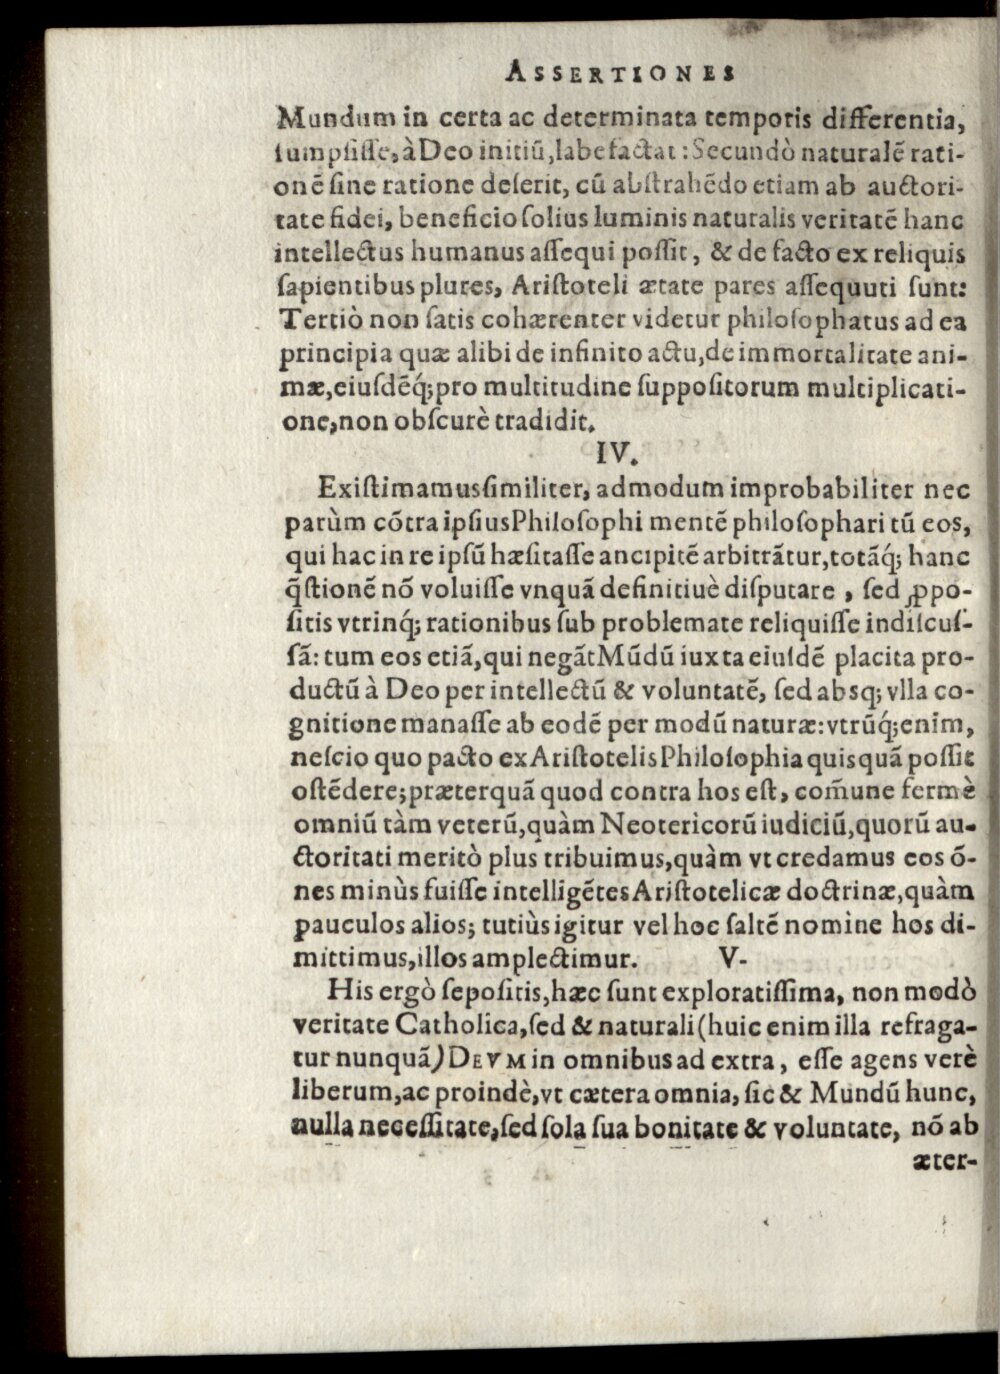 ASSERTIONES
Mundum in certa ac determinata temporis differentia,
ſumpſiſſe, à Deo initiū, labefactat: Secundò naturalē rati-
onē ſine ratione deſerit, cū abſtrahēdo etiam ab auctori-
tate fidei, beneficio ſolius luminis naturalis veritatē hanc
intellectus humanus aſſequi poſſit, & de facto ex reliquis
ſapientibus plures, Ariſtoteli ætate pares aſſequuti ſunt:
Tertiò non ſatis cohærenter videtur philoſophatus ad ea
principia quæ alibi de infinito actu, de immortalitate ani-
mæ, eiuſdēq́; pro multitudine ſuppoſitorum multiplicati-
one, non obſcurè tradidit.
IV.
Exiſtimamus ſimiliter, admodum improbabiliter nec
parùm cōtra ipſius Philoſophi mentē philoſophari tū eos,
qui hac in re ipſū hæſitaſſe ancipitē arbitrātur, totāq́; hanc
q̄ſtionē nō voluiſſe vnquā definitiuè diſputare, ſed ꝓpo-
ſitis vtrinq́; rationibus ſub problemate reliquiſſe indiſcuſ-
ſā: tum eos etiā, qui negāt Mūdū iuxta eiuſdē placita pro-
ductū à Deo per intellectū & voluntatē, ſed absq; vlla co-
gnitione manaſſe ab eodē per modū naturæ: vtrūq́; enim,
neſcio quo pacto ex Ariſtotelis Philoſophia quisquā poſſit
oſtēdere; præterquā quod contra hos eſt, com̄une fermè
omniū tàm veterū, quàm Neotericorū iudiciū, quorū au-
ctoritati meritò plus tribuimus, quàm vt credamus eos ō-
nes minùs fuiſſe intelligētes Ariſtotelicæ doctrinæ, quàm
pauculos alios; tutiùs igitur vel hoc ſaltē nomine hos di-
mittimus, illos amplectimur. V-
His ergò ſepoſitis, hæc ſunt exploratiſſima, non modò
veritate Catholica, ſed & naturali (huic enim illa refraga-
tur nunquā) DEVM in omnibus ad extra, eſſe agens verè
liberum, ac proindè, vt cætera omnia, ſic & Mundū hunc,
nulla neceſſitate, ſed ſola ſua bonitate & voluntate, nō ab
æter-